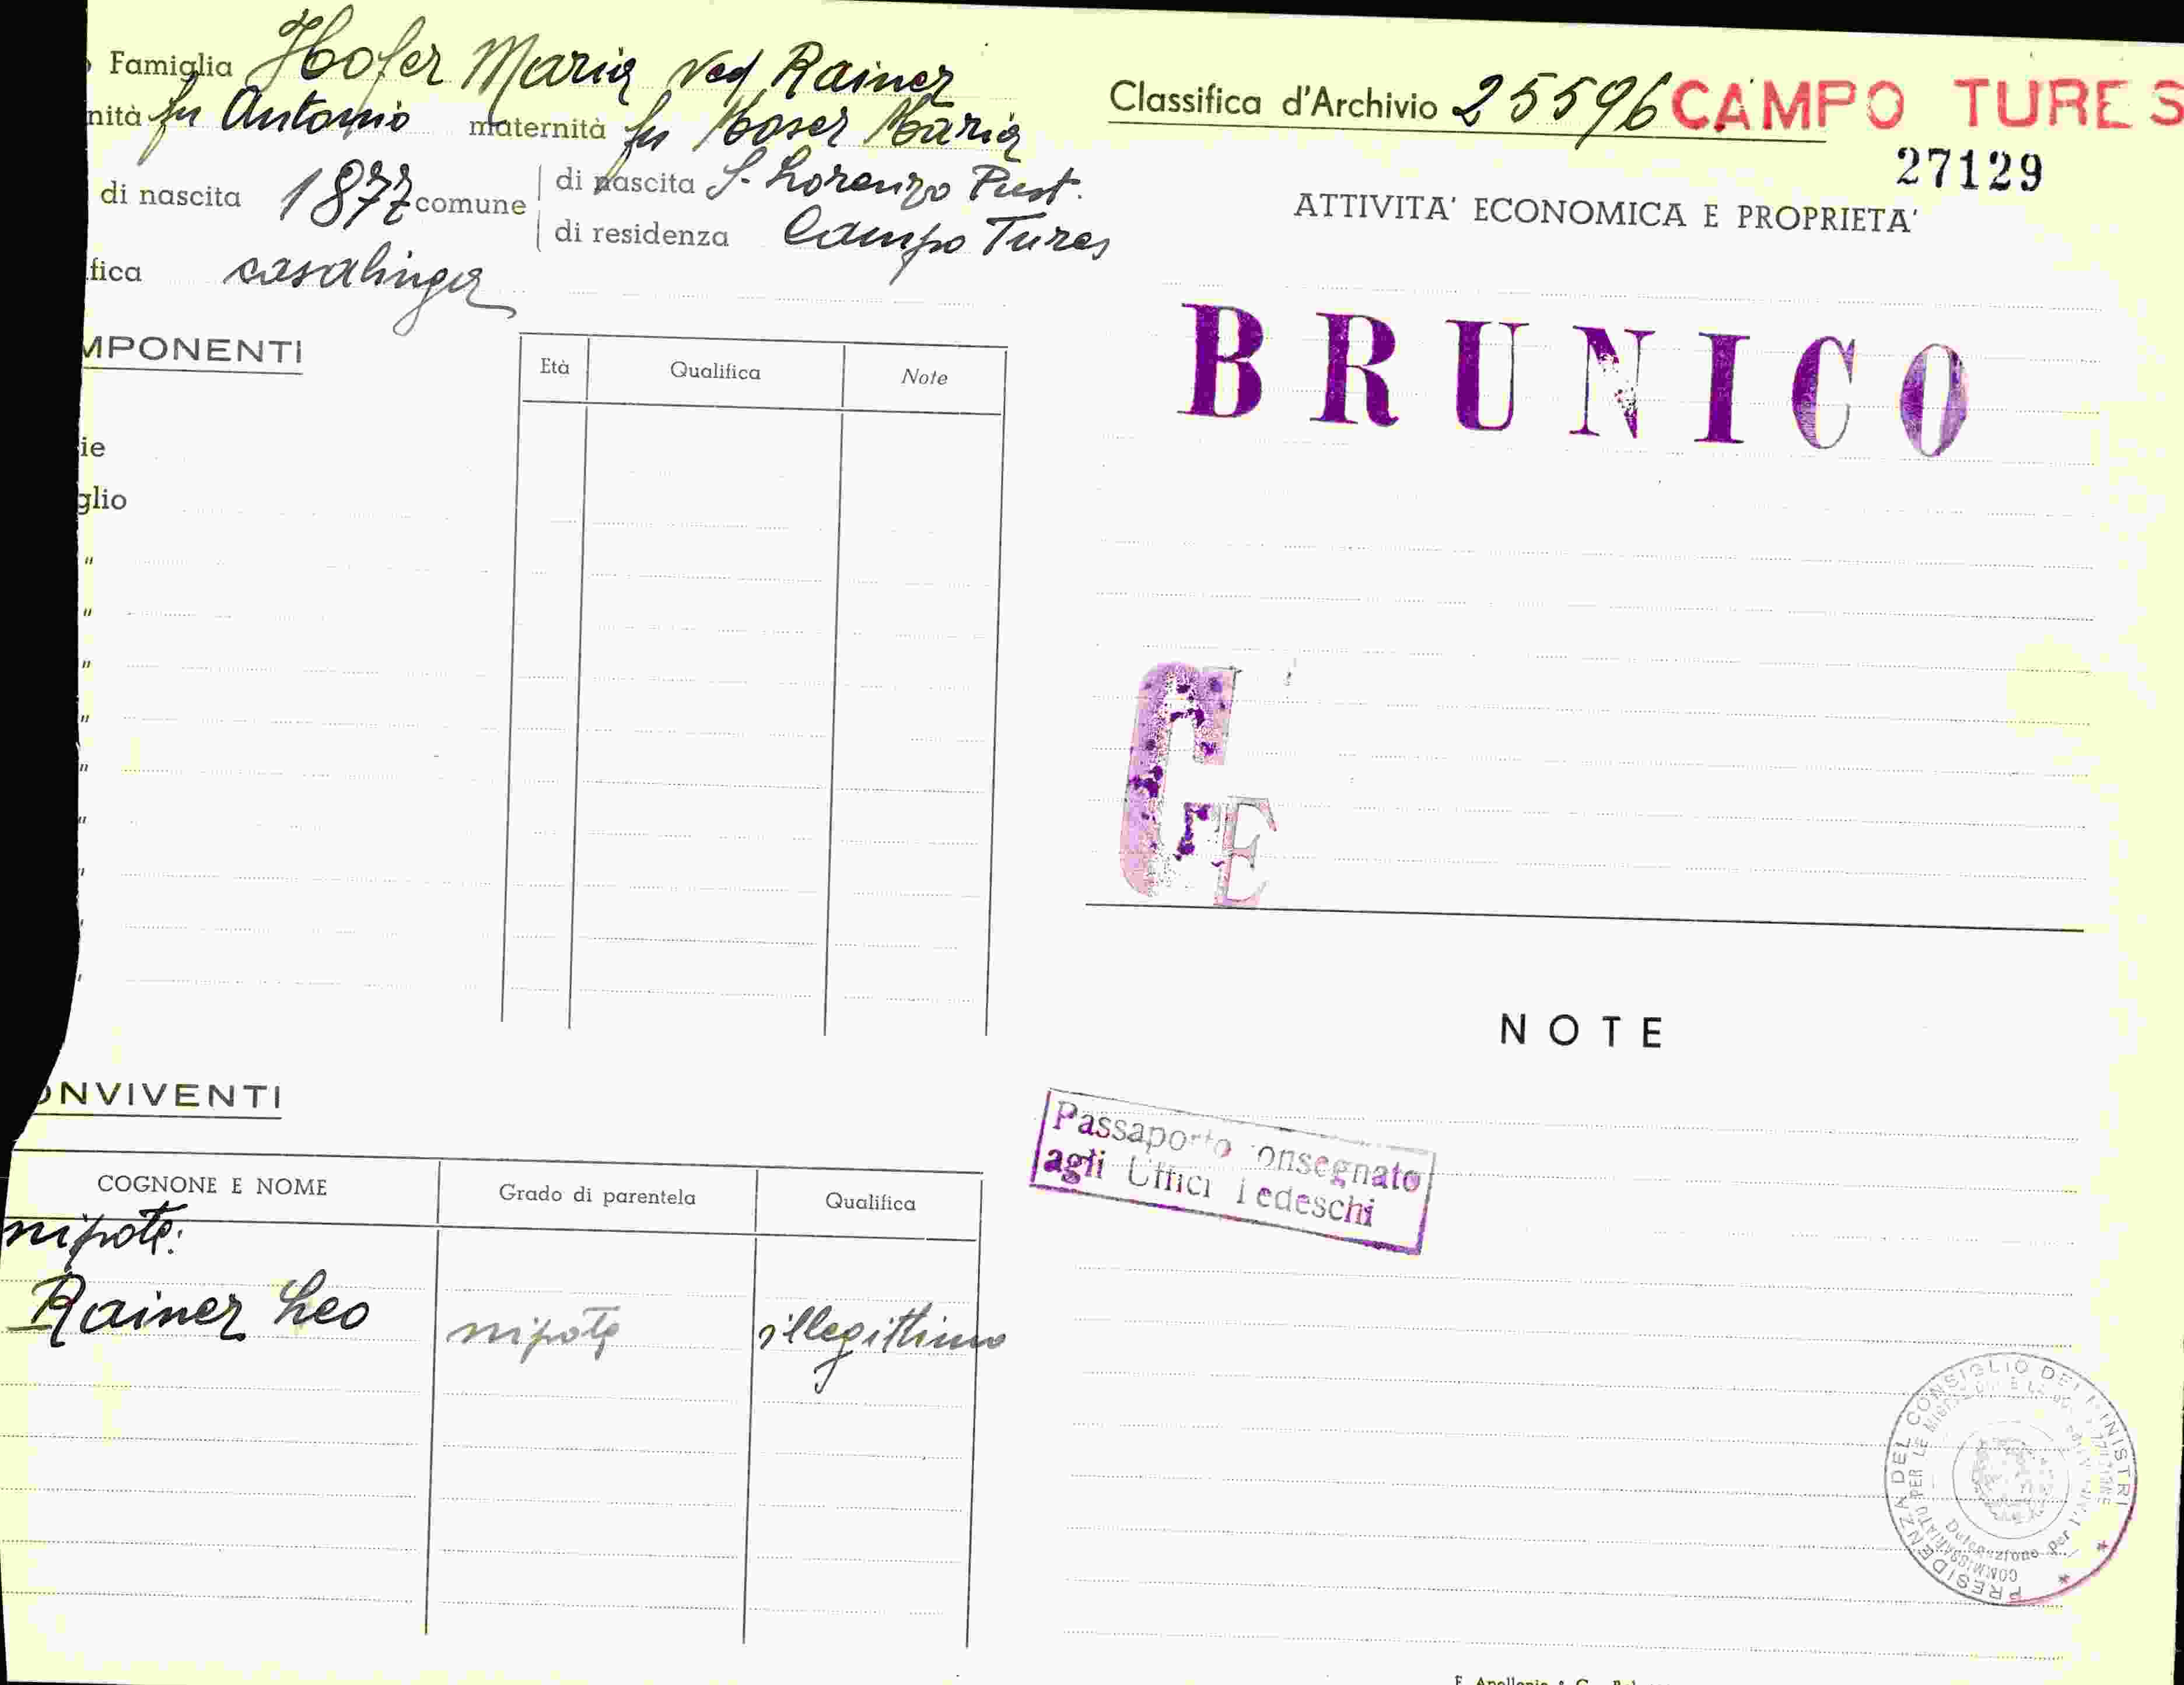 Famiglia Hofer Maria ved Rainer
nità fu Antonio maternità fu Moser Maria
di nascita 1877 comune di nascita S. Lorenzo Pust.
di residenza Campo Tures
fica casalinga
MPONENTI
Età Qualifica Note
ie
glio
"
"
"
"
"
"
"
"
"
ONVIVENTI
COGNONE E NOME Grado di parentela Qualifica
nipote:
Rainer Leo nipote illegittimo
Classifica d'Archivio 25596 CAMPO TURES
27129
ATTIVITA' ECONOMICA E PROPRIETA'
BRUNICO
G
E
NOTE
Passaporto consegnato
agli Uffici Tedeschi
PRESIDENZA DEL CONSIGLIO DEI MINISTRI
COMMISSARIATO PER LE
Delegazione per